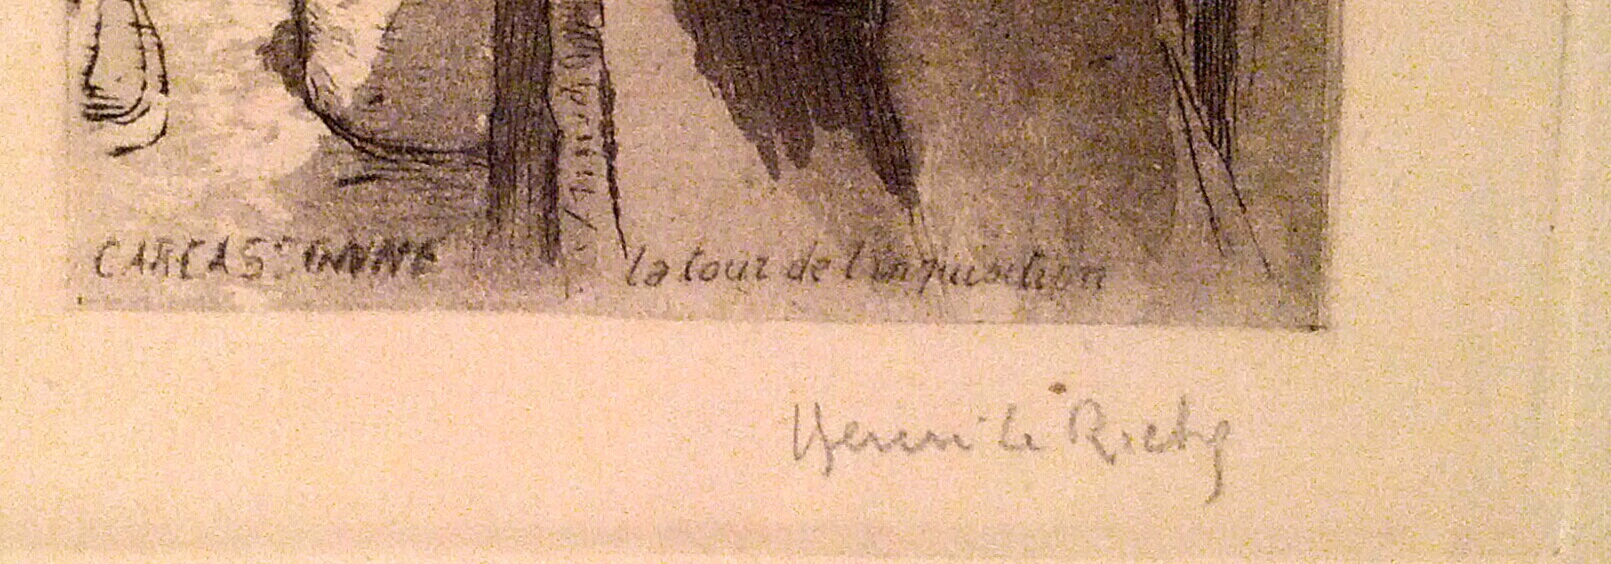 CARCASSONNE la tour de l'inquisition
Henri Le Riche